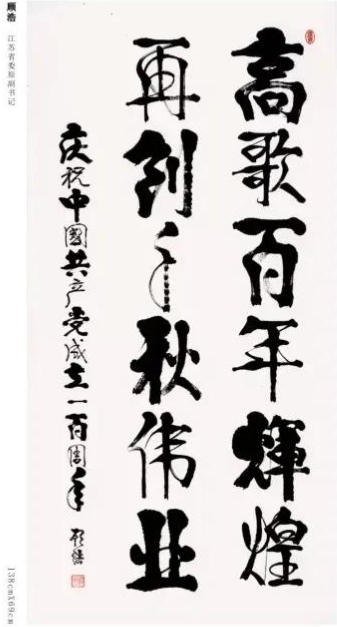 高歌百年輝煌
再創千秋伟业
庆祝中國共产党成立一百周年 顾浩
顾浩 江苏省委原副书记
138cmX69cm